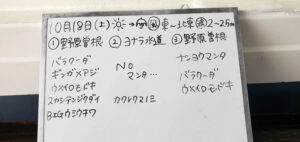 10月18日(土) 東〜北東 2〜2.5m
①野原曽根 ②ヨナラ水道 ③野原曽根
バラクーダ
ギンガメアジ
ウメイロモドキ
スカシテンジクダイ
BIGウミウチワ
NO
マンタ…
カクレクマノミ
ナンヨウマンタ
バラクーダ
ウメイロモドキ